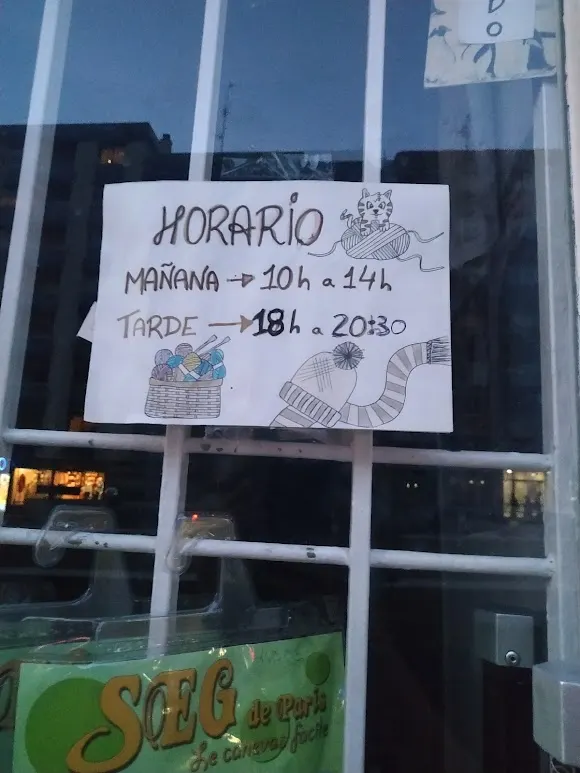 DO
HORARIO
MAÑANA → 10h a 14h
TARDE → 18h a 20:30
SEG
de Paris
Le canevas facile